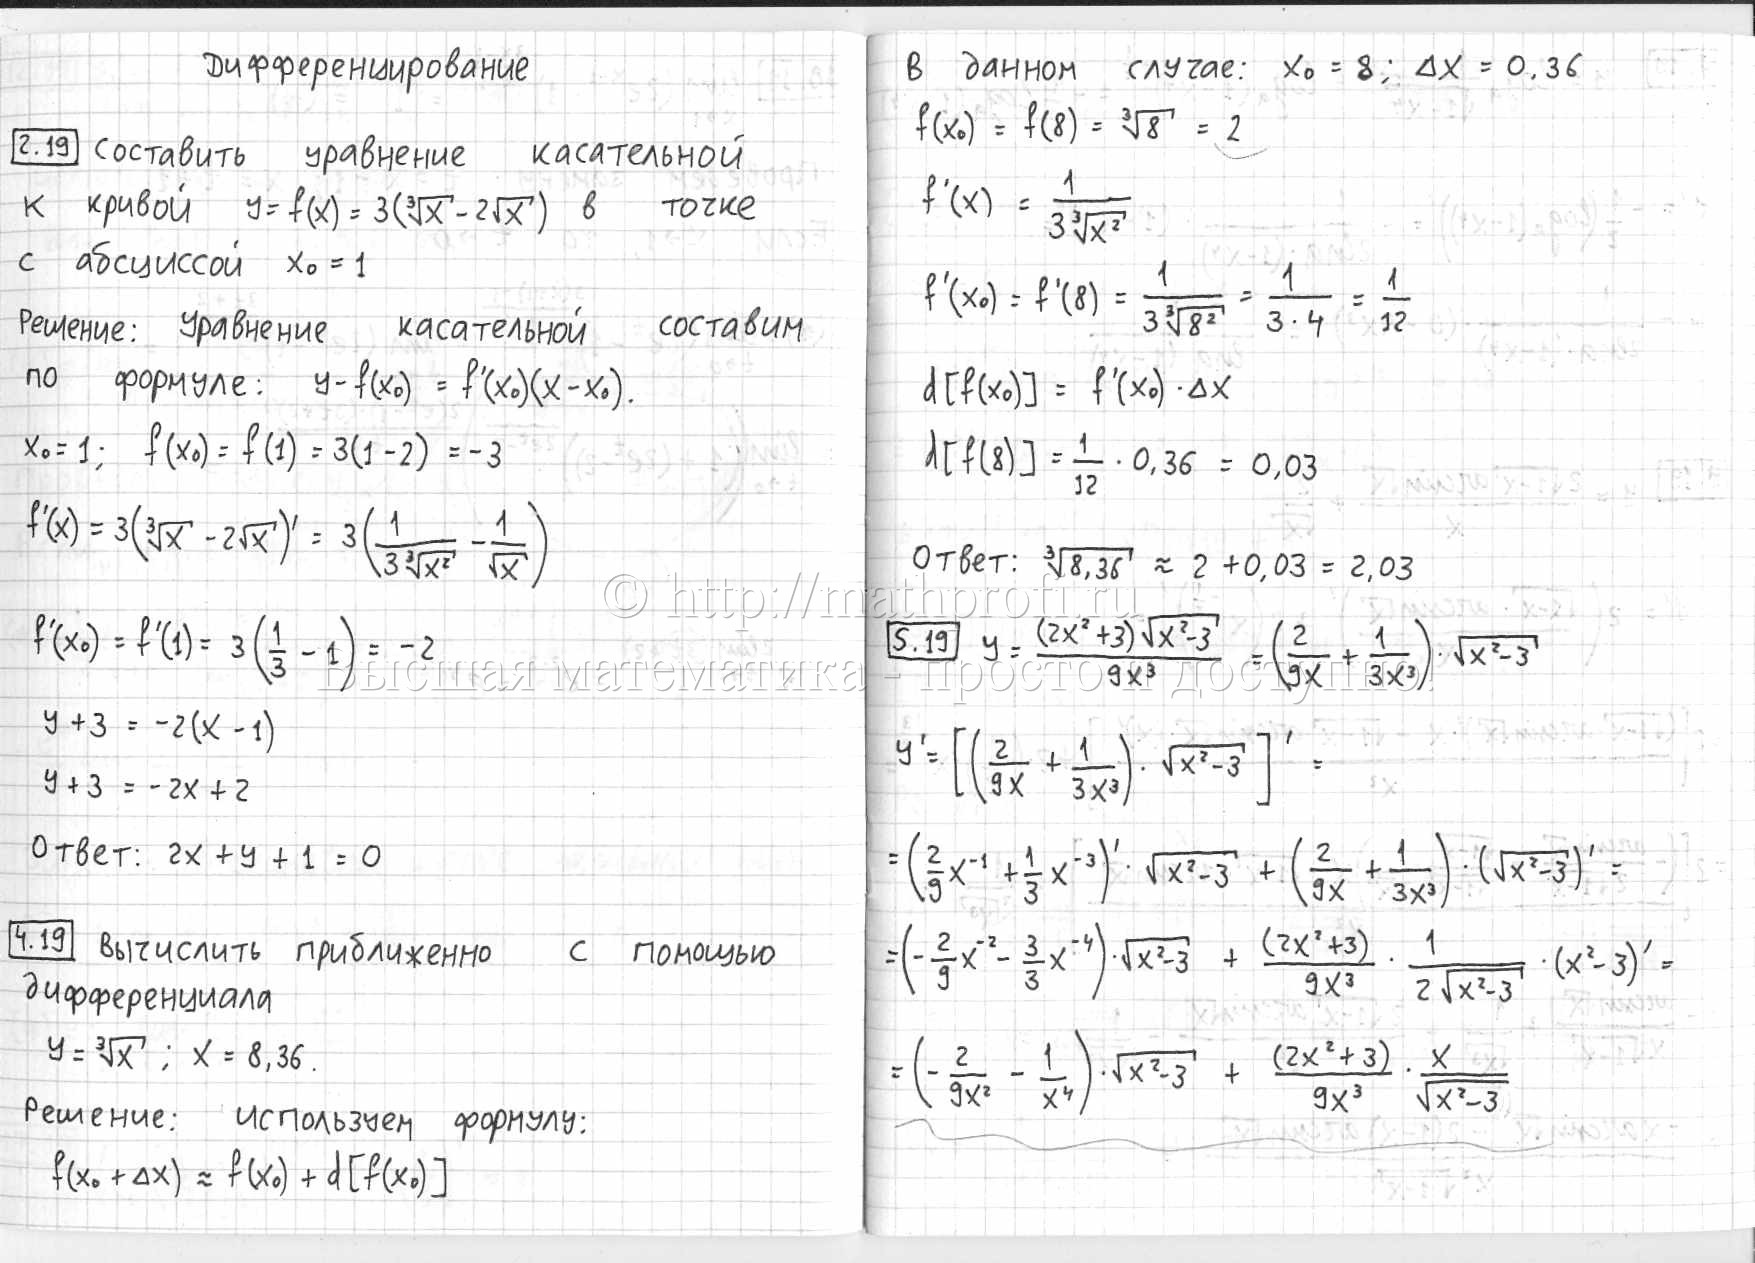 Дифференцирование
2.19 Составить уравнение касательной
к кривой y = f(x) = 3(∛x - 2√x) в точке
с абсциссой x₀ = 1
Решение: Уравнение касательной составим
по формуле: y - f(x₀) = f'(x₀)(x - x₀).
x₀ = 1; f(x₀) = f(1) = 3(1 - 2) = -3
f'(x) = 3(∛x - 2√x)' = 3(1/(3∛x²) - 1/√x)
f'(x₀) = f'(1) = 3(1/3 - 1) = -2
y + 3 = -2(x - 1)
y + 3 = -2x + 2
Ответ: 2x + y + 1 = 0
4.19 Вычислить приближенно с помощью
дифференциала
y = ∛x ; x = 8,36.
Решение: используем формулу:
f(x₀ + Δx) ≈ f(x₀) + d[f(x₀)]
В данном случае: x₀ = 8; Δx = 0,36
f(x₀) = f(8) = ∛8 = 2
f'(x) = 1/(3∛x²)
f'(x₀) = f'(8) = 1/(3∛8²) = 1/(3·4) = 1/12
d[f(x₀)] = f'(x₀)·Δx
d[f(8)] = 1/12 · 0,36 = 0,03
Ответ: ∛8,36 ≈ 2 + 0,03 = 2,03
© http://mathprofi.ru
5.19 y = (2x² + 3)√(x² - 3)/(9x³) = (2/(9x) + 1/(3x³))·√(x² - 3)
Высшая математика - просто и доступно!
y' = [(2/(9x) + 1/(3x³))·√(x² - 3)]' =
= (2/9 x⁻¹ + 1/3 x⁻³)'·√(x² - 3) + (2/(9x) + 1/(3x³))·(√(x² - 3))' =
= (-2/9 x⁻² - 3/3 x⁻⁴)·√(x² - 3) + (2x² + 3)/(9x³) · 1/(2√(x² - 3)) · (x² - 3)' =
= (-2/(9x²) - 1/x⁴)·√(x² - 3) + (2x² + 3)/(9x³) · x/√(x² - 3)